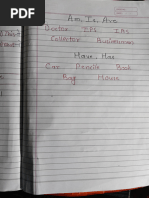 Am, Is, Are
Doctor IPS IAS
Collector Businessman
Have, Has
Car Pencils Book
Bag House